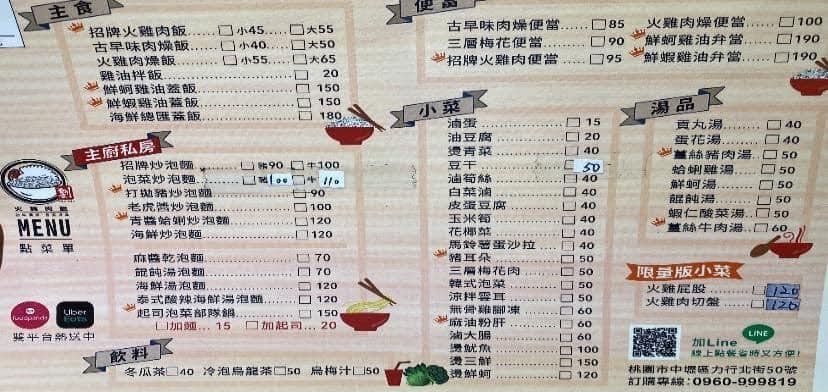 主食
招牌火雞肉飯......□小45....□大55
古早味肉燥飯......□小40....□大50
火雞肉燥飯........□小55....□大65
雞油拌飯..................□ 20
鮮蚵雞油蓋飯............□ 150
鮮蝦雞油蓋飯............□ 150
海鮮總匯蓋飯............□ 180
便當
古早味肉燥便當.....□ 85
三層梅花便當........□ 90
招牌火雞肉便當.....□ 95
火雞肉燥便當........□ 100
鮮蚵雞油弁當........□ 190
鮮蝦雞油弁當........□ 190
主廚私房
招牌炒泡麵........□豬90 □牛100
泡菜炒泡麵........□豬100 □牛110
打拋豬炒泡麵............□ 90
老虎醬炒泡麵............□ 100
青醬蛤蜊炒泡麵.........□ 120
海鮮炒泡麵...............□ 120
麻醬乾泡麵...............□ 70
餛飩湯泡麵...............□ 70
海鮮湯泡麵...............□ 120
泰式酸辣海鮮湯泡麵....□ 120
起司泡菜部隊鍋.........□ 150
□加麵... 15 □加起司... 20
小菜
滷蛋..................□ 15
油豆腐...............□ 20
燙青菜...............□ 40
豆干..................□ 50
滷筍絲...............□ 40
白菜滷...............□ 40
皮蛋豆腐............□ 40
玉米筍...............□ 40
花椰菜...............□ 40
馬鈴薯蛋沙拉......□ 40
豬耳朵...............□ 50
三層梅花肉.........□ 50
韓式泡菜............□ 50
涼拌雲耳............□ 50
無骨雞腳凍.........□ 60
麻油粉肝............□ 60
滷大腸...............□ 60
燙魷魚...............□ 100
燙三鮮...............□ 150
燙鮮蚵...............□ 120
湯品
貢丸湯............□ 40
蛋花湯............□ 40
薑絲豬肉湯......□ 50
蛤蜊雞湯.........□ 50
鮮蚵湯............□ 50
餛飩湯............□ 50
蝦仁酸菜湯......□ 50
薑絲牛肉湯......□ 60
限量版小菜
火雞屁股.........□ 120
火雞肉切盤......□ 120
火雞肉飯
MENU
點菜單
foodpanda
Uber Eats
雙平台熱送中
飲料
冬瓜茶□40 冷泡烏龍茶□50 烏梅汁□50
加Line
LINE
線上點餐省時又方便!
桃園市中壢區力行北街50號
訂購專線:0960-999819